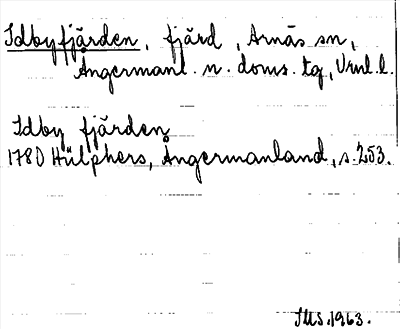 Idbyfjärden, fjärd, Arnäs sn,
Ångermanl. n. doms. tg, Vnl. l.
Idby fjärden
1780 Hülphers, Ångermanland, s. 253.
IMS. 1963.